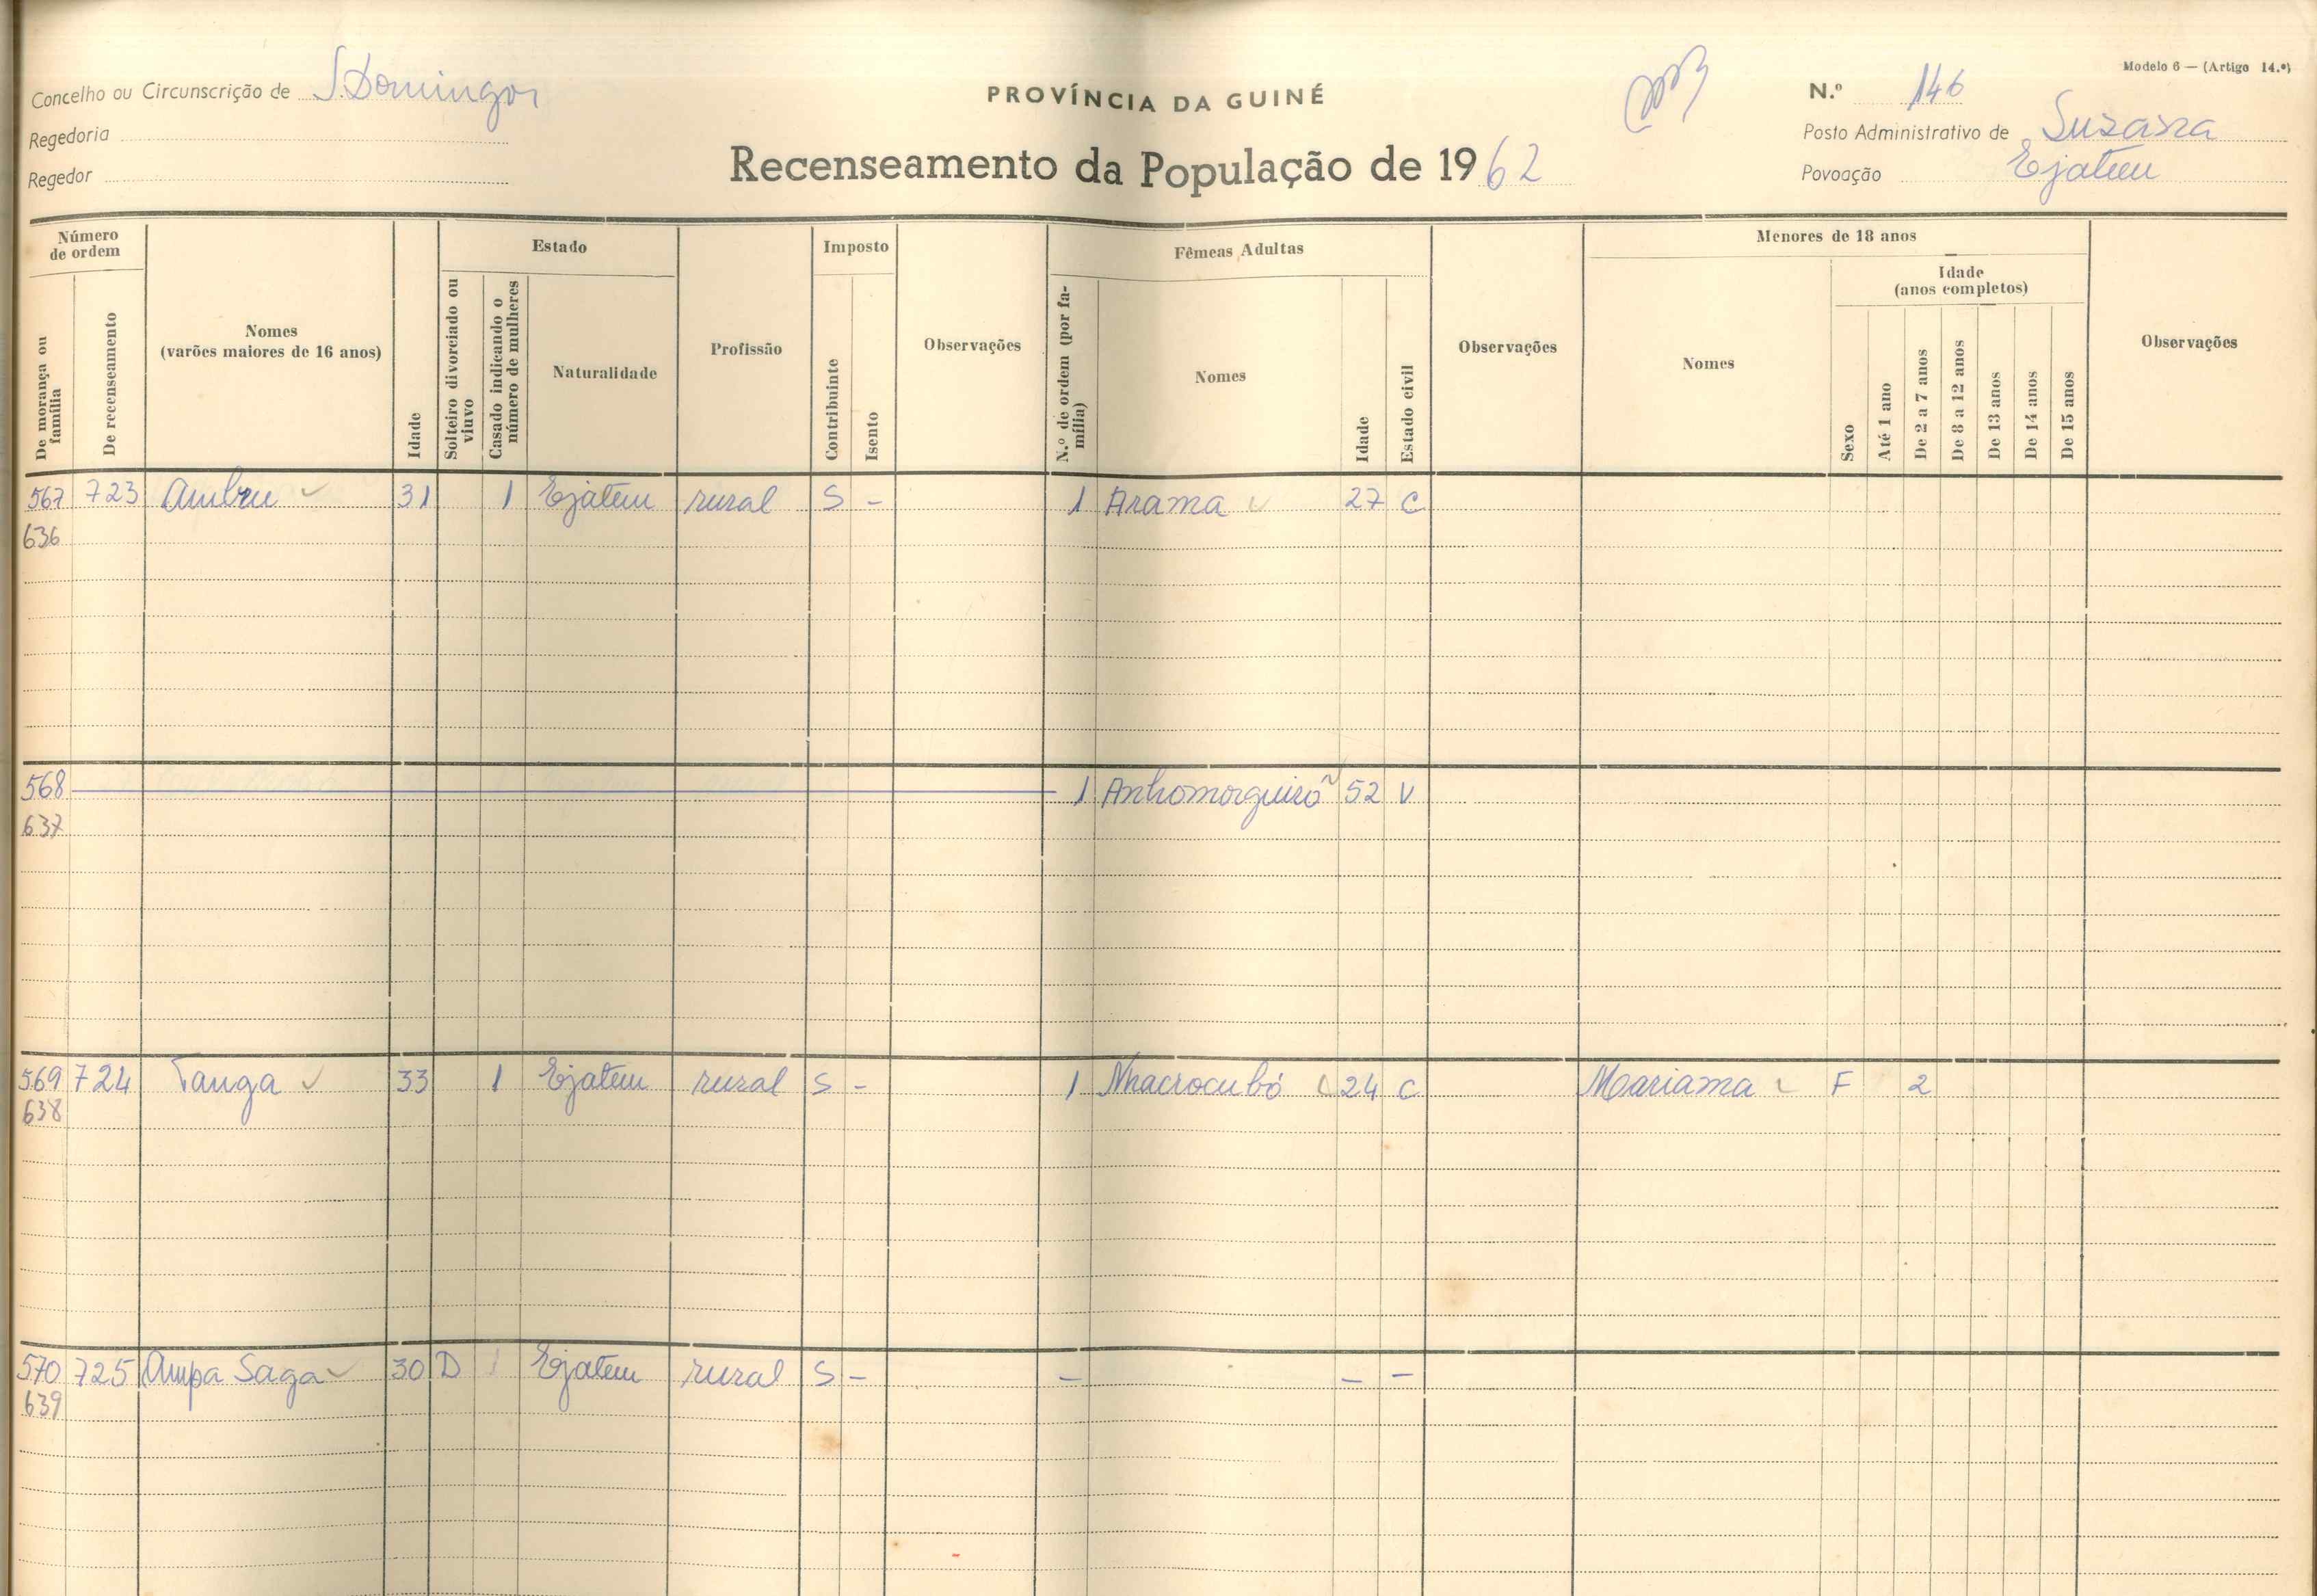 Modelo 6 — (Artigo 14.º)
Concelho ou Circunscrição de S. Domingos
PROVÍNCIA DA GUINÉ
N.º 146
Regedoria
Posto Administrativo de Suzana
Regedor
Recenseamento da População de 1962
Povoação Ejatem
Número de ordem
De morança ou família
De recenseamento
Nomes
(varões maiores de 16 anos)
Idade
Estado
Solteiro divorciado ou viuvo
Casado indicando o número de mulheres
Naturalidade
Profissão
Imposto
Contribuinte
Isento
Observações
Fêmeas Adultas
N.º de ordem (por família)
Nomes
Idade
Estado civil
Observações
Menores de 18 anos
Nomes
Sexo
Idade
(anos completos)
Até 1 ano
De 2 a 7 anos
De 8 a 12 anos
De 13 anos
De 14 anos
De 15 anos
Observações
567 723 Ambru 31 1 Ejatem rural S - 1 Arama 27 C
636
568 1 52 V
637
569 724 Tanga 33 1 Ejatem rural S - 1 Nhacrocubó 24 C Mariama F 2
638
570 725 Ampa Saga 30 D Ejatem rural S - - - -
639